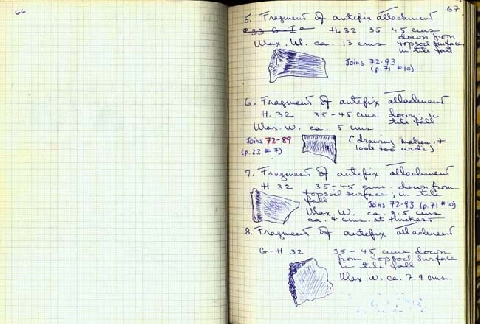 66
67
5. Fragment of antefix attachment
H 32 35-45 cms
down from
Max. W. ca. 13 cms topsoil surface
in the fall
Joins 72-93
(p. 71 #10)
6. Fragment of antefix attachment
H. 32 35-45 cms down in
the fall
Max. W. ca 5 cms
Joins 72-89
(p. 22 # 7)
(drawing makes it
look too wide)
7. Fragment of antefix attachment
H 32 35-45 cms. down from
topsoil surface, in the
fall
Joins 72-93 (p. 71 #10)
Max W. ca. 9.5 cms
ca. 4 cms. at thickest
8. Fragment of antefix attachment
G-H 32 35-45 cms down
from topsoil surface
in the fall
Max W. ca. 7.9 cms.